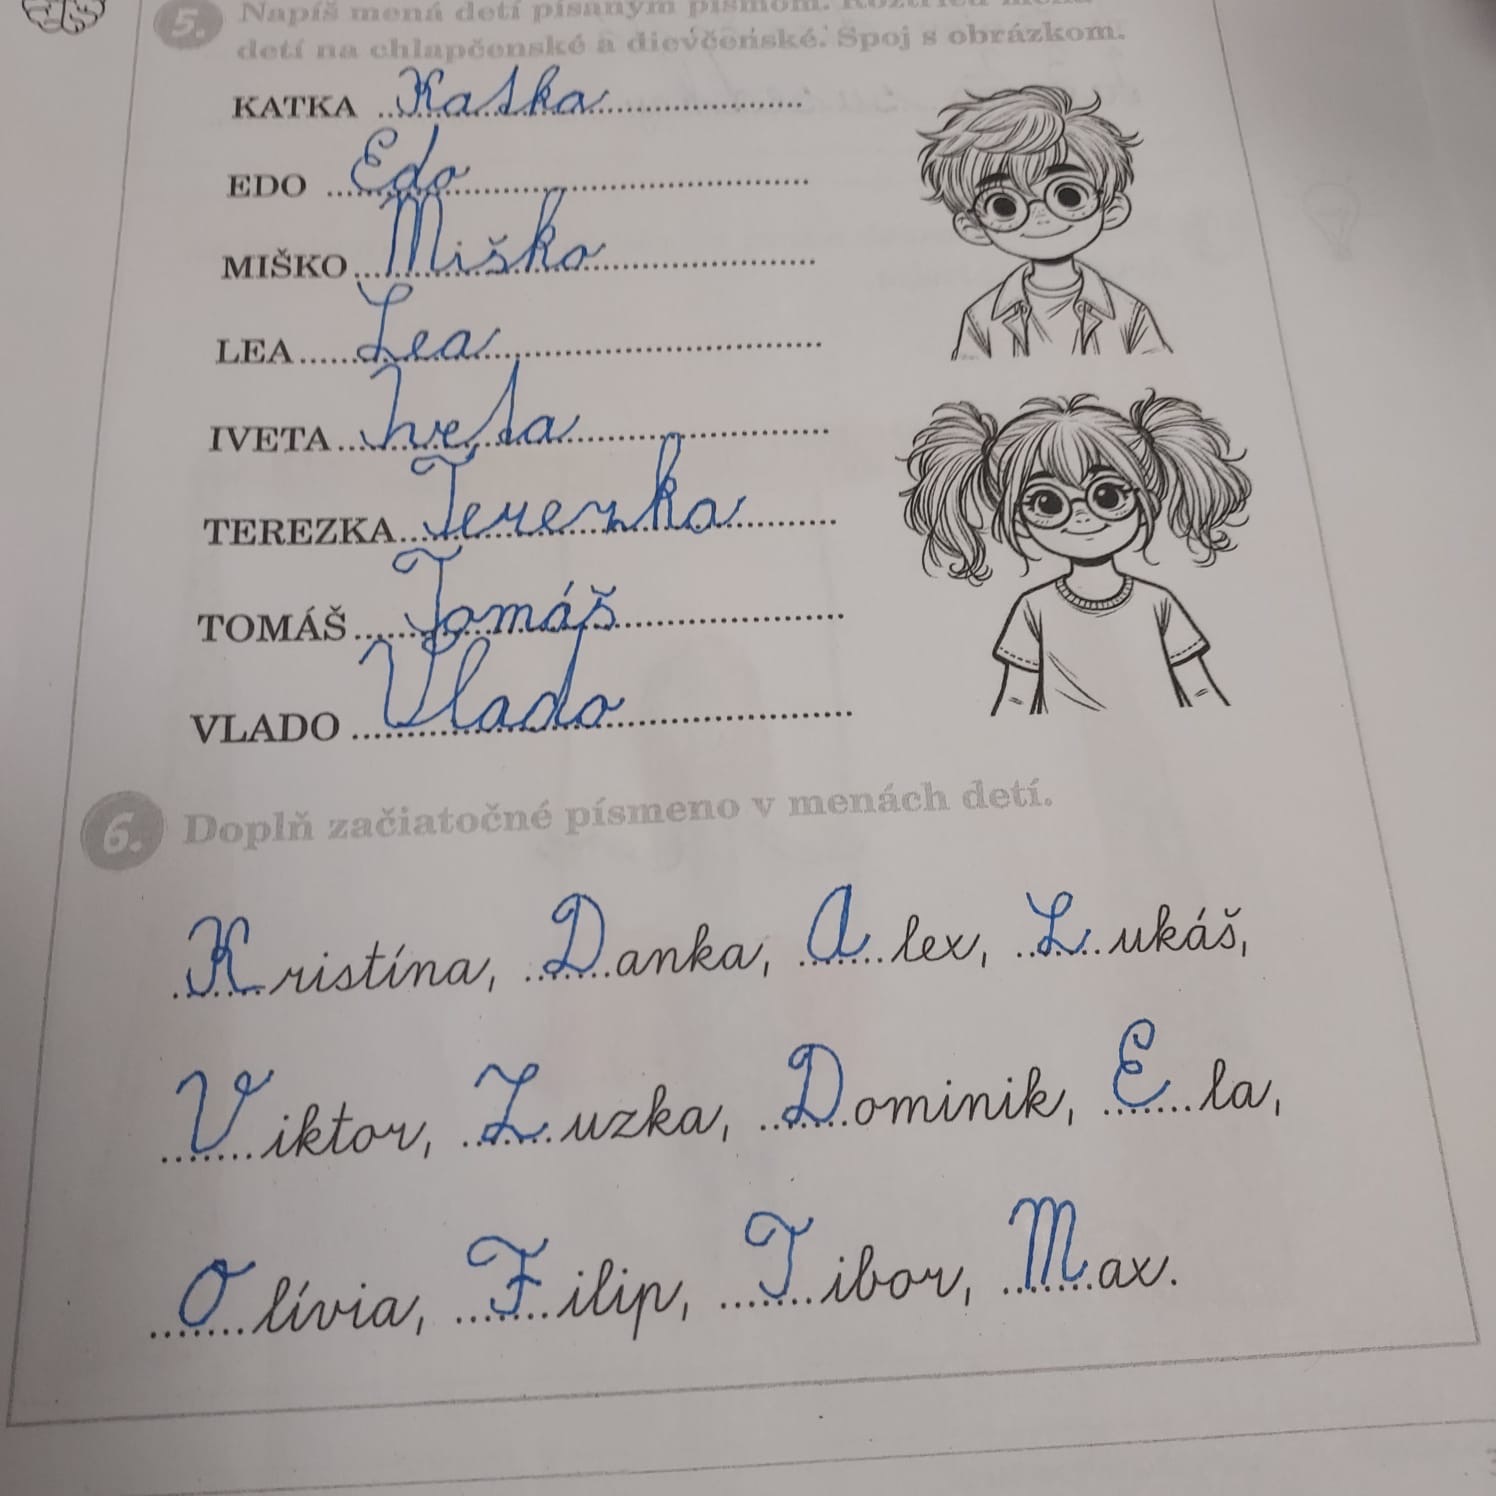 5. Napíš mená detí písaným písmom. Roztrieď mená
detí na chlapčenské a dievčenské. Spoj s obrázkom.
KATKA Katka
EDO Edo
MIŠKO Miško
LEA Lea
IVETA Iveta
TEREZKA Terezka
TOMÁŠ Tomáš
VLADO Vlado
6. Doplň začiatočné písmeno v menách detí.
Kristína, Danka, Alex, Lukáš,
Viktor, Zuzka, Dominik, Ela,
Olívia, Filip, Tibor, Max.